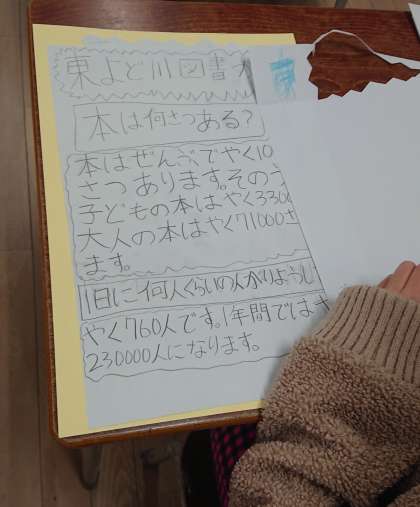 東よど川図書
本は何さつある?
本はぜんぶでやく10
さつあります。そのう
子どもの本はやく3300
大人の本はやく71000さ
ます。
1日に何人くらいの人がりようし
やく760人です。1年間では
230000人になります。